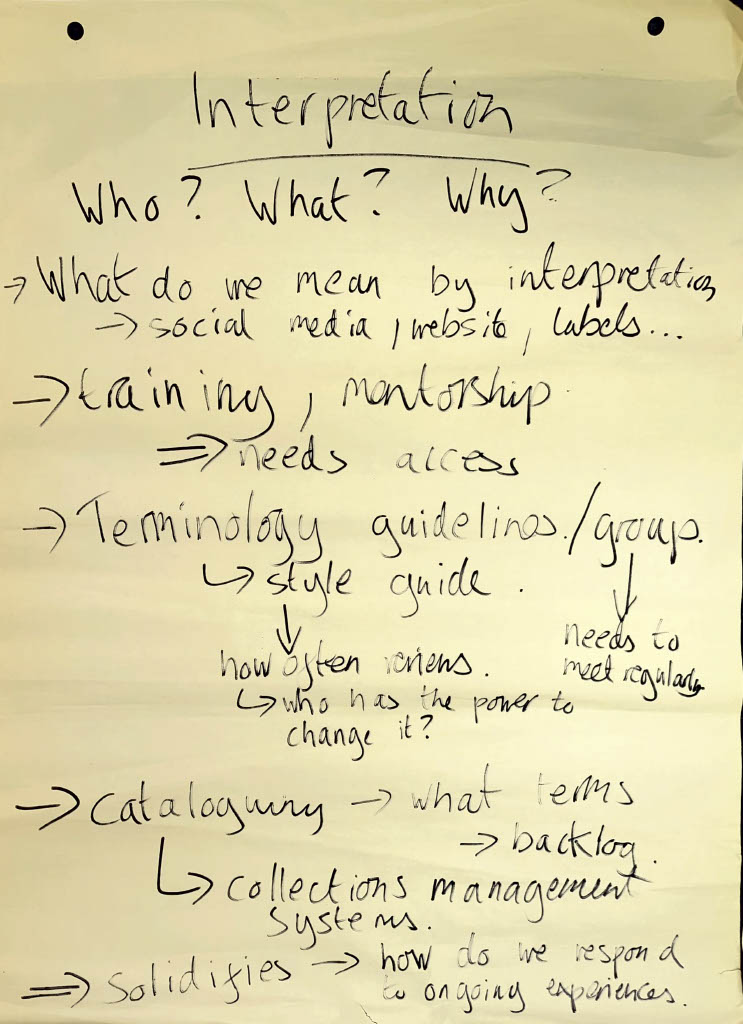 Interpretation
Who? What? Why?
→ What do we mean by interpretation
→ social media, website, labels...
→ training, mentorship
⇒ needs access
→ Terminology guidelines./group.
↳ style guide.
↓ ↓
how often reviews.
needs to
meet regularly
↳ who has the power to
change it?
→ cataloguing → what terms
→ backlog.
↳ collections management
systems.
⇒ Solidifies → how do we respond
to ongoing experiences.